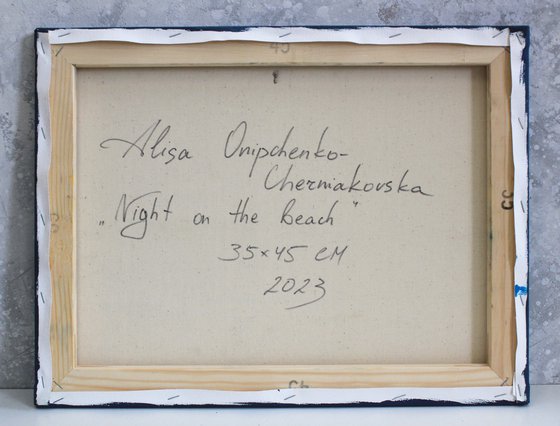 45
Alisa Onipchenko-
Cherniakovska
„Night on the beach"
35×45 CM
2023
35
35
45